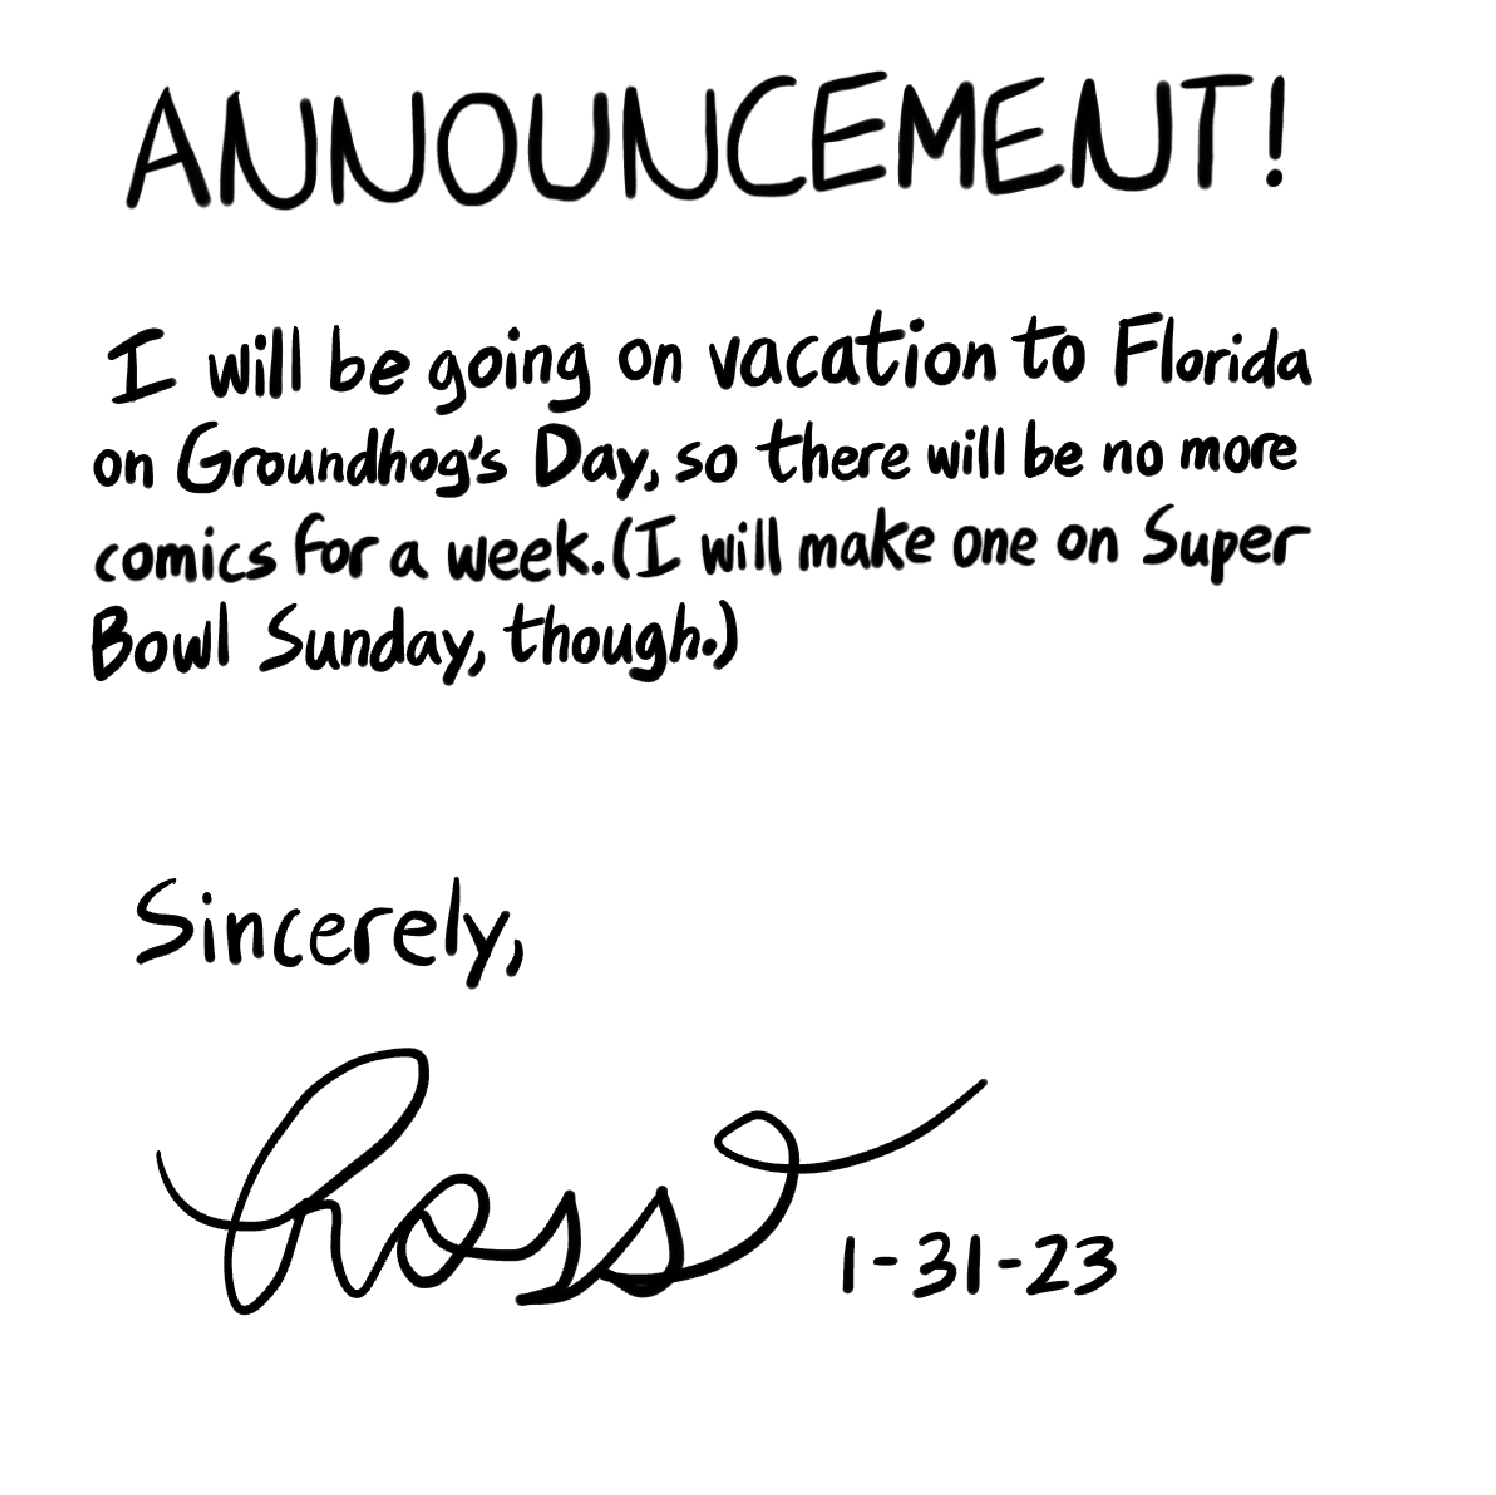 ANNOUNCEMENT!
I will be going on vacation to Florida
on Groundhog's Day, so there will be no more
comics for a week. (I will make one on Super
Bowl Sunday, though.)
Sincerely,
Ross 1-31-23